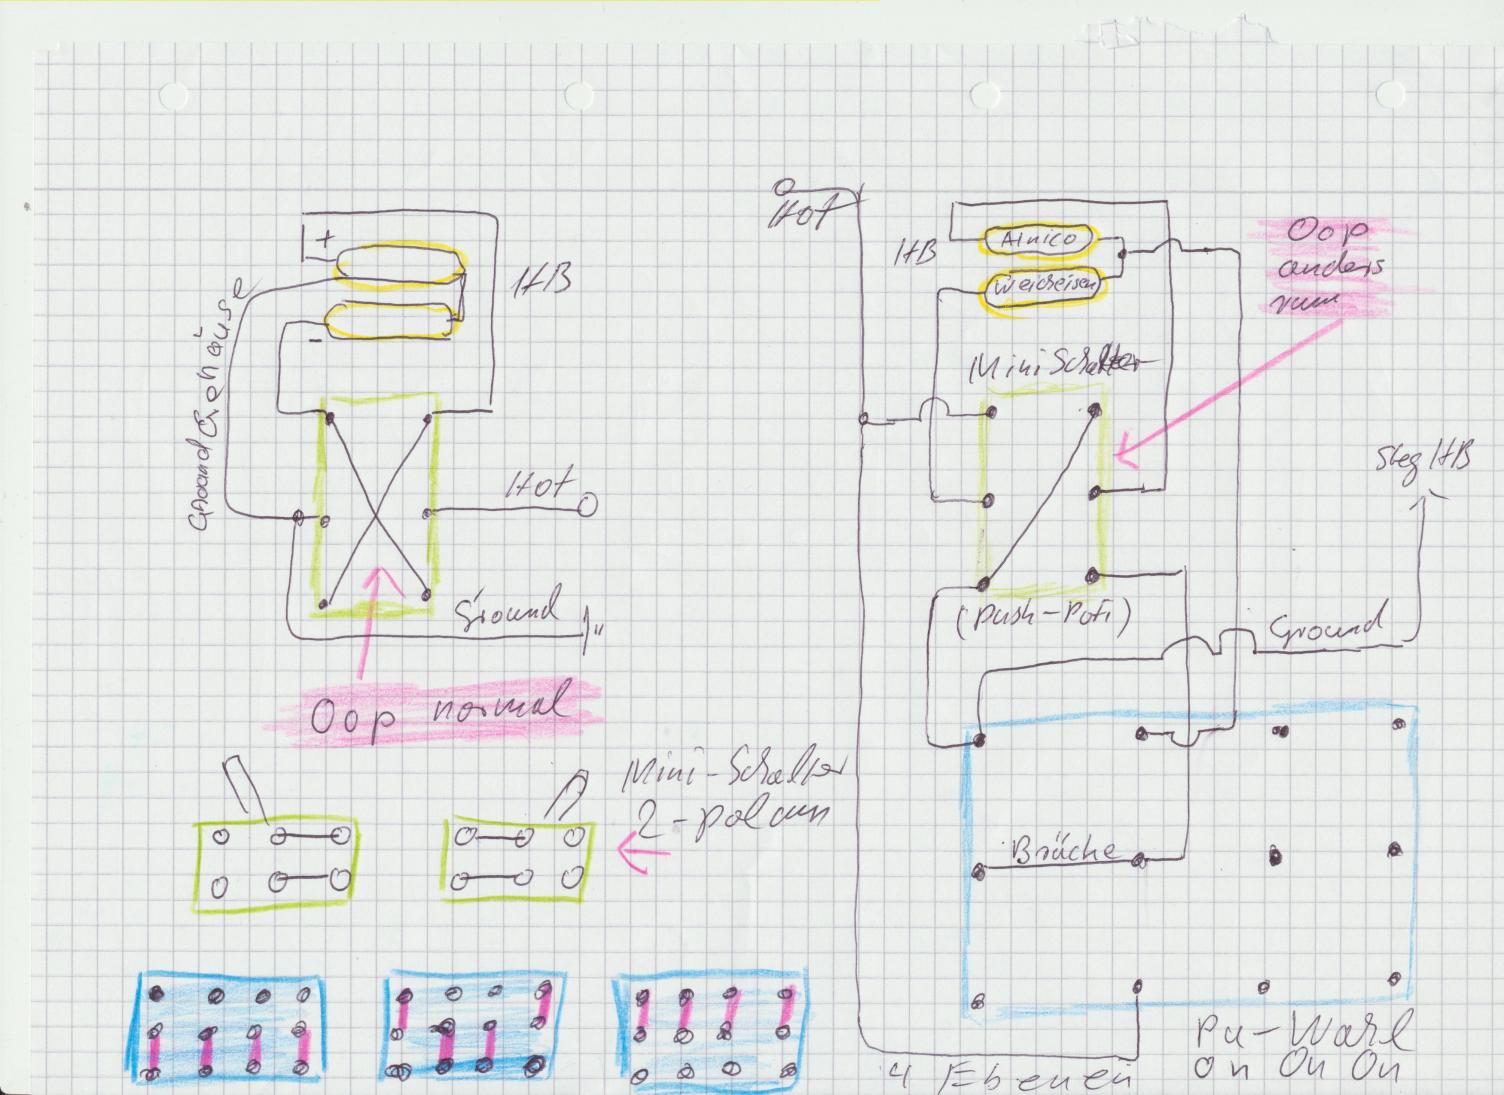 +
-
HB
Ground Gehäuse
Hot
Ground
Oop normal
Mini-Schalter
2-polaun
Hot
HB
Alnico
Weicheisen
Oop
anders
rum
Mini Schalter
(Push-Poti)
Steg HB
Ground
Brücke
4 Ebenen
Pu-Wahl
On On On